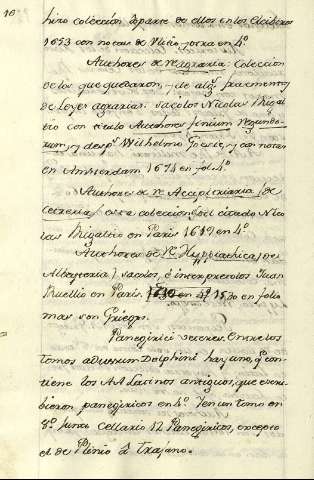 16
hizo colección de parte de ellos en los
1653 con notas de y otra en 4º
Authores de re agraria: Coleccion
de los que quedaron, y de alg.s fragmentos
de leyes agrarias. Sacolos Nicolas Rigal
tio con titulo Authores finium regundo-
rum, y desp.s Wilhelmo Goesie, y con notas
en Amsterdam 1674 en fol. 4º
Authores de re Accipitraria (de
Cetreria) otra coleccion del citado Nico
las Rigaltio en Paris 1619 en 4º
Authores de Re Hyppiathica (de
Albeyteria) sacolos, è interpretolos Juan
Ruellio en Paris 1530 en folio
mas son Griegos.
Panegirici veteres. Entre los
tomos ad usum Dolphini hay uno, q.e con
tiene los AA Latinos antiguos, que escri
bieron panegiricos en 4º. Y en un tomo en
8º junta Cellario 12 Panegiricos, excepto
el de Plinio à Trajano.